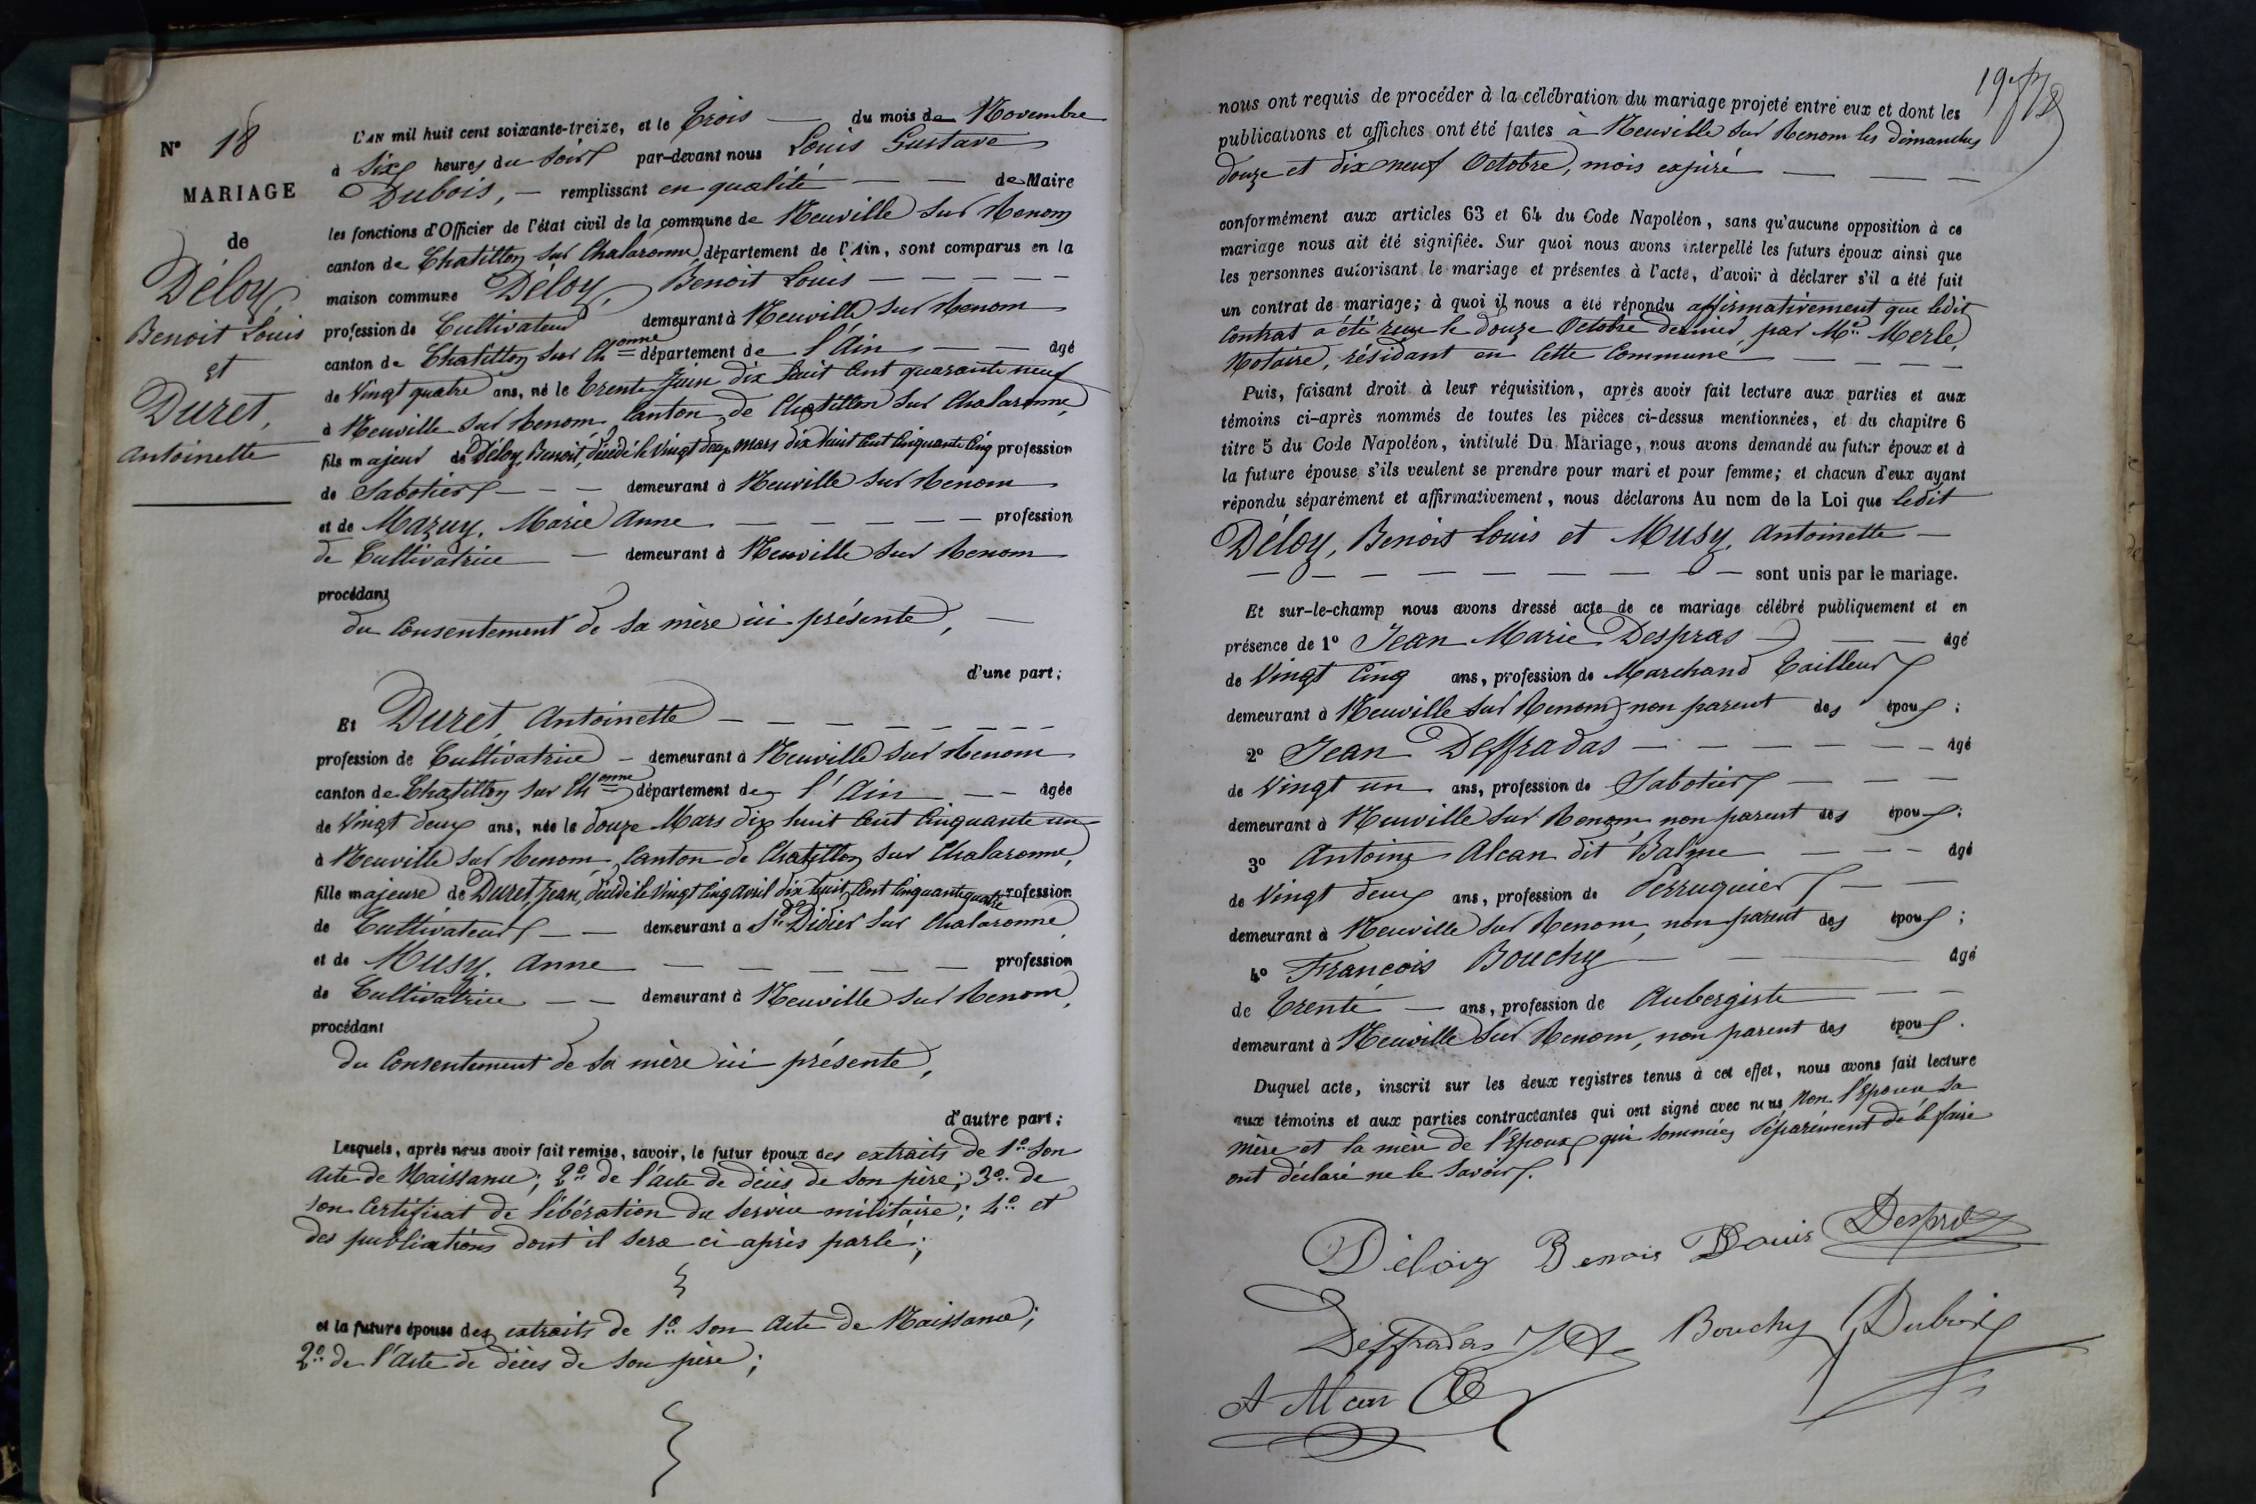 N° 18
MARIAGE
de
Déloy,
Benoit Louis
et
Duret,
Antoinette
L'AN mil huit cent soixante-treize, et le Trois du mois de Novembre
à Six heures du Soir par-devant nous Louis Gustave
Dubois, remplissant en qualité de Maire
les fonctions d'Officier de l'état civil de la commune de Neuville sur Renom
canton de Chatillon sur Chalaronne département de l'Ain, sont comparus en la
maison commune Déloy, Benoit Louis
profession de Cultivateur demeurant à Neuville sur Renom
canton de Chatillon sur Chonne département de l'Ain âgé
de Vingt quatre ans, né le Trente Juin dix huit Cent quarante neuf
à Neuville sur Renom, Canton de Chatillon sur Chalaronne,
fils majeur de Déloy, Benoit, décédé le Vingt deux mars dix huit Cent Cinquante Cinq profession
de Sabotier demeurant à Neuville sur Renom
et de Mazuy, Marie Anne profession
de Cultivatrice demeurant à Neuville sur Renom
procédant
du Consentement de sa mère ici présente,
d'une part;
Et Duret, Antoinette
profession de Cultivatrice demeurant à Neuville sur Renom
canton de Chatillon sur Chonne département de l'Ain âgée
de Vingt deux ans, née le douze Mars dix huit Cent Cinquante un
à Neuville sur Renom, Canton de Chatillon sur Chalaronne,
fille majeure de Duret, Jean, décédé le Vingt Cinq avril dix huit Cent Cinquante quatre profession
de Cultivateur demeurant à St Didier sur Chalaronne
et de Musy, Anne profession
de Cultivatrice demeurant à Neuville sur Renom,
procédant
du Consentement de sa mère ici présente,
d'autre part;
Lesquels, après nous avoir fait remise, savoir, le futur époux des extraits de 1° son
acte de Naissance; 2° de l'acte de décès de son père; 3° de
son Certificat de libération du service militaire; 4° et
des publications dont il sera ci après parlé;
et la future épouse des extraits de 1° son acte de Naissance;
2° de l'acte de décès de son père;
19
nous ont requis de procéder à la célébration du mariage projeté entre eux et dont les
publications et affiches ont été faites à Neuville sur Renom les dimanches
douze et dix neuf Octobre, mois expiré
conformément aux articles 63 et 64 du Code Napoléon, sans qu'aucune opposition à ce
mariage nous ait été signifiée. Sur quoi nous avons interpellé les futurs époux ainsi que
les personnes autorisant le mariage et présentes à l'acte, d'avoir à déclarer s'il a été fait
un contrat de mariage; à quoi il nous a été répondu affirmativement que ledit
Contrat a été reçu le douze Octobre dernier, par Me Merle,
Notaire, résidant en Cette Commune
Puis, faisant droit à leur réquisition, après avoir fait lecture aux parties et aux
témoins ci-après nommés de toutes les pièces ci-dessus mentionnées, et du chapitre 6
titre 5 du Code Napoléon, intitulé Du Mariage, nous avons demandé au futur époux et à
la future épouse s'ils veulent se prendre pour mari et pour femme; et chacun d'eux ayant
répondu séparément et affirmativement, nous déclarons Au nom de la Loi que ledit
Déloy, Benoit Louis et Musy, Antoinette
sont unis par le mariage.
Et sur-le-champ nous avons dressé acte de ce mariage célébré publiquement et en
présence de 1° Jean Marie Despras âgé
de Vingt Cinq ans, profession de Marchand Tailleur
demeurant à Neuville sur Renom, non parent des époux;
2° Jean Deffradas âgé
de Vingt un ans, profession de Sabotier
demeurant à Neuville sur Renom, non parent des époux;
3° Antoine Alcan dit Balme âgé
de Vingt deux ans, profession de Perruquier
demeurant à Neuville sur Renom, non parent des époux;
4° François Bouchy âgé
de Trente ans, profession de Aubergiste
demeurant à Neuville sur Renom, non parent des époux.
Duquel acte, inscrit sur les deux registres tenus à cet effet, nous avons fait lecture
aux témoins et aux parties contractantes qui ont signé avec nous, Non l'Epouse sa
mère et la mère de l'Epoux qui sommées séparément de le faire
ont déclaré ne le savoir.
Déloiy Benois Louis Despras
Deffradas Bouchy Dubois
A Alcan